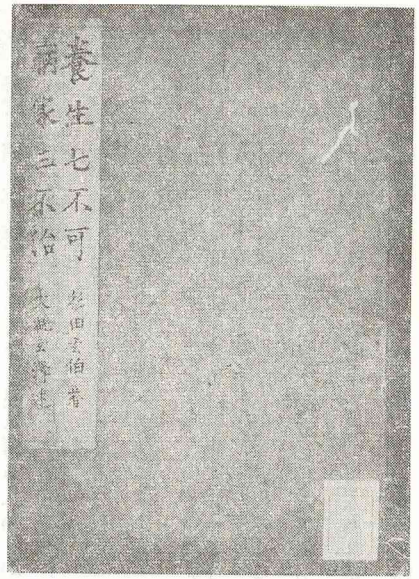 養生七不可 杉田玄伯著
病家三不治 大槻玄澤述